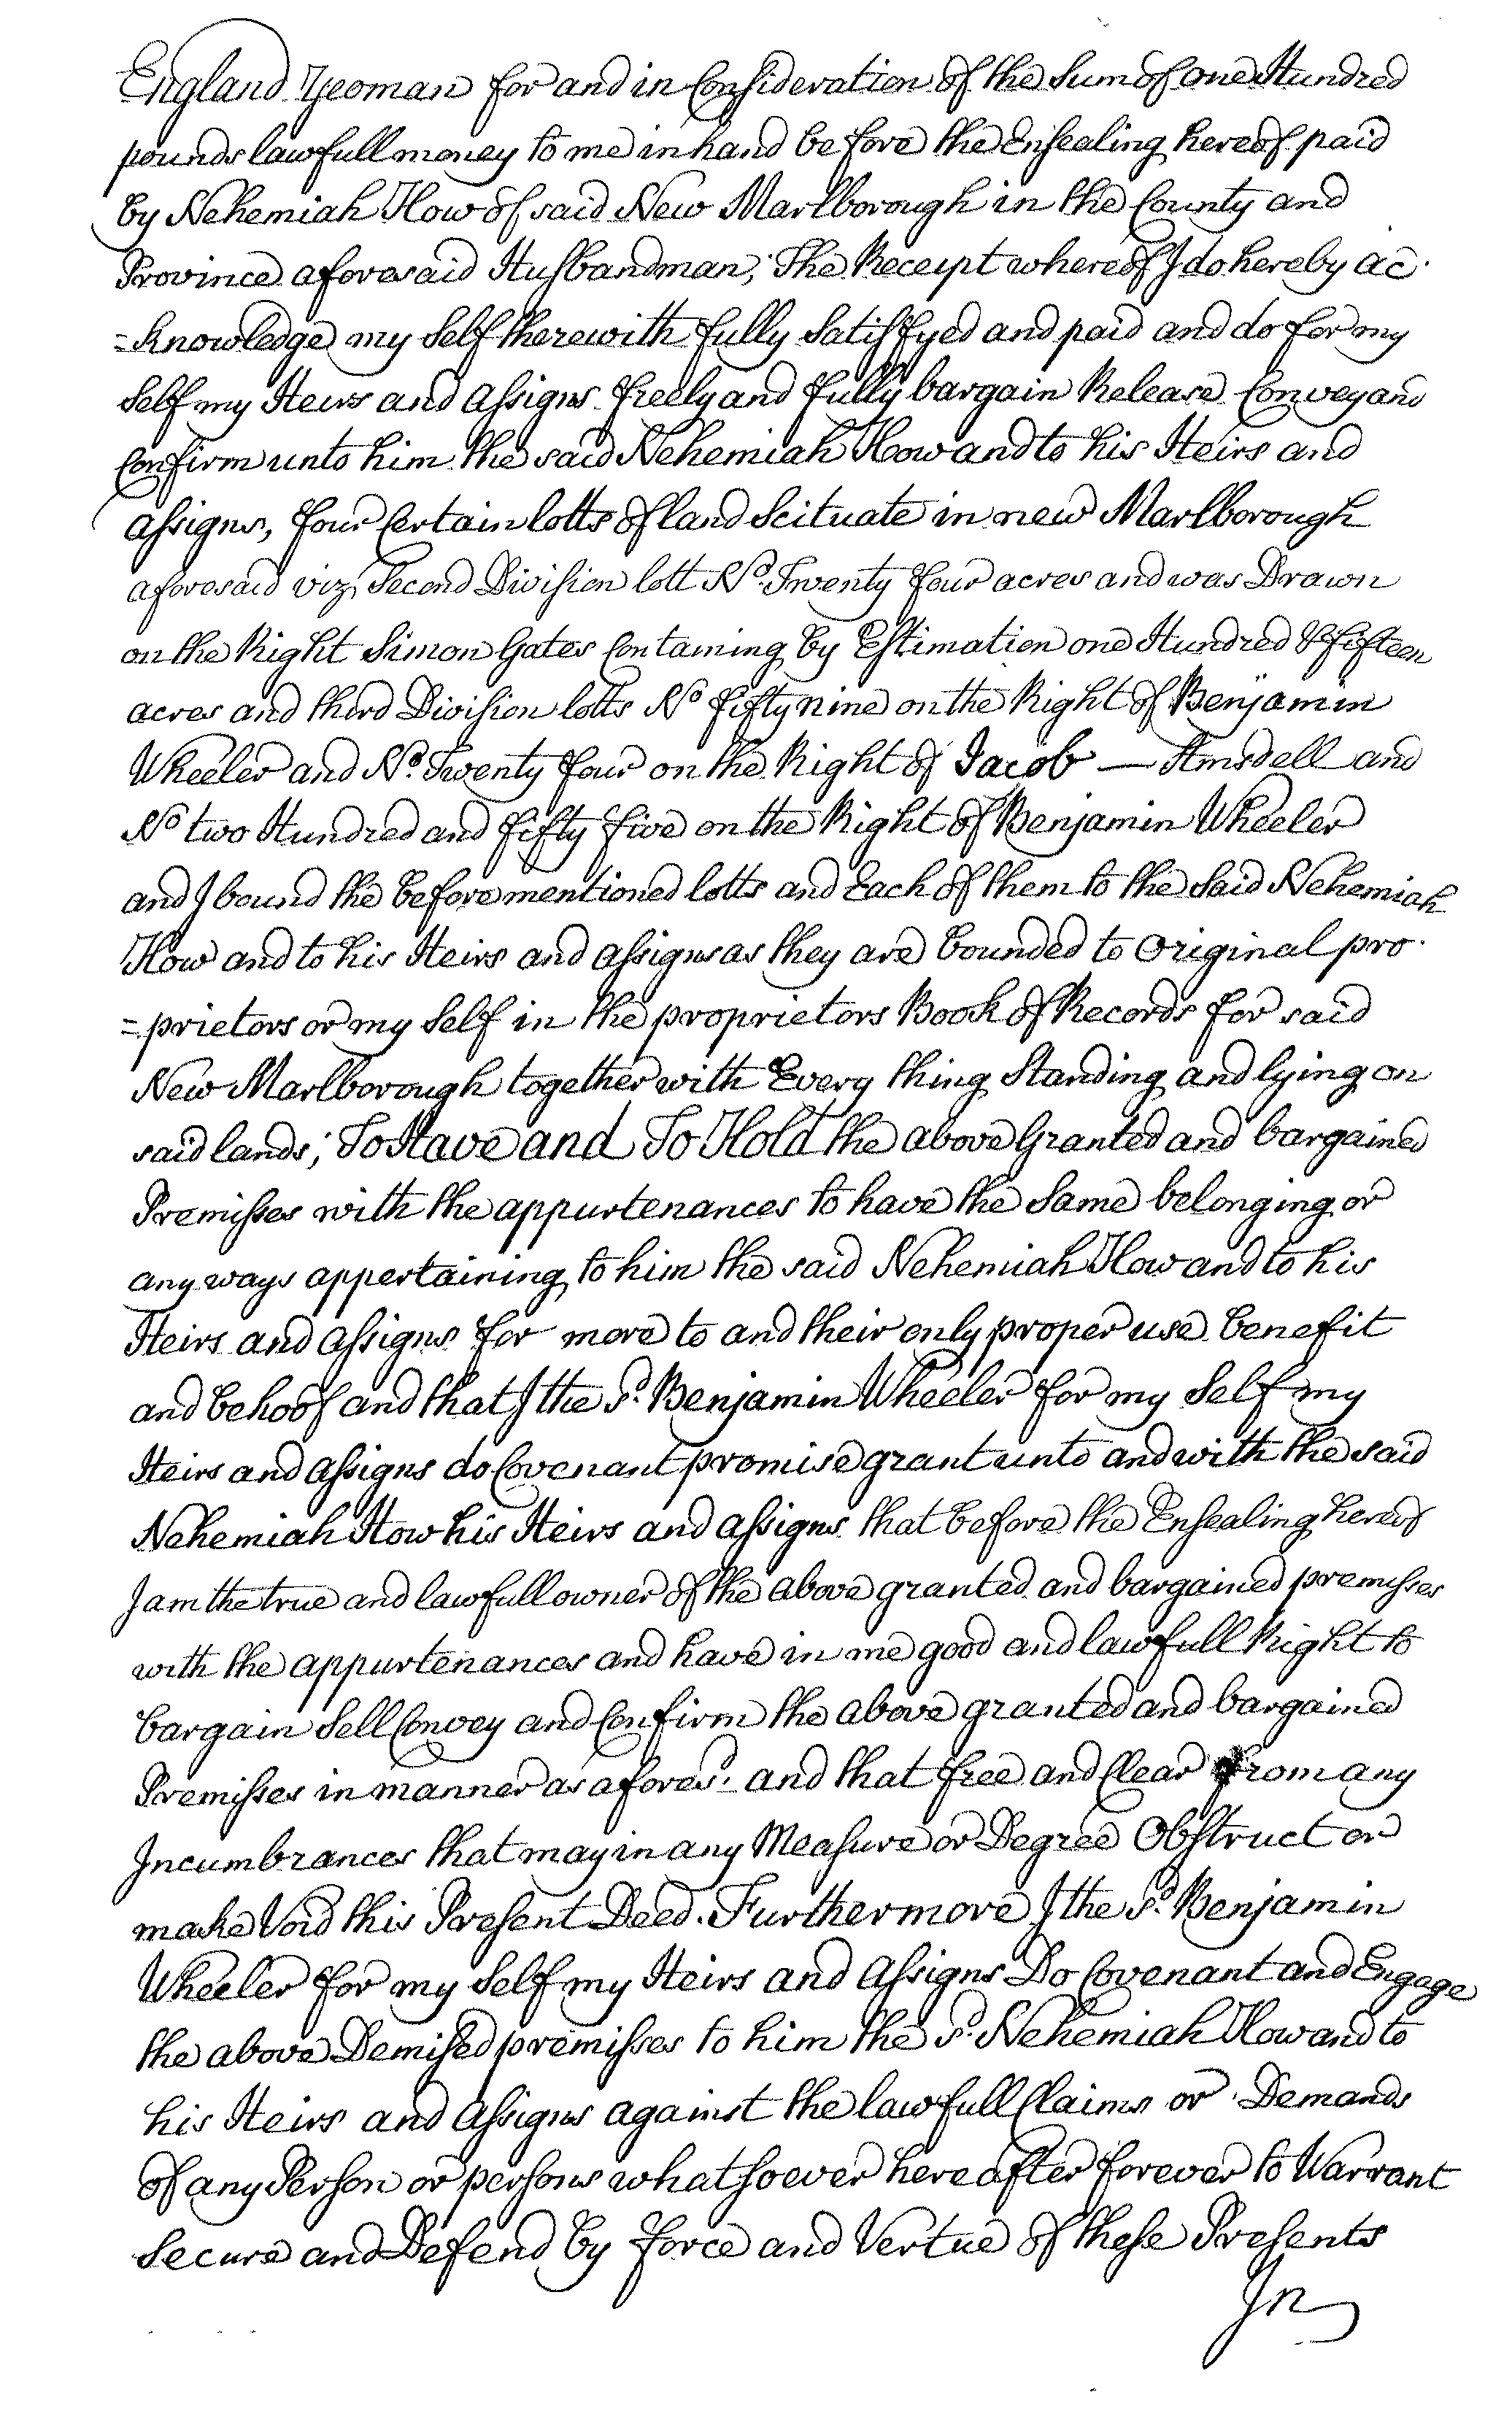 England Yeoman for and in Consideration of the Sum of one Hundred
pounds lawfull money to me in hand before the Ensealing hereof paid
by Nehemiah How of said New Marlborough in the County and
Province aforesaid Husbandman; The Receipt whereof I do hereby ac-
=knowledge my self therewith fully satisfyed and paid and do for my
Self my Heirs and assigns freely and fully bargain Release Convey and
Confirm unto him the said Nehemiah How and to his Heirs and
assigns, four Certain lotts of land Scituate in new Marlborough
aforesaid viz, Second Division lott No. Twenty four acres and was Drawn
on the Right Simon Gates Containing by Estimation one Hundred & fifteen
acres and third Division lotts No fifty nine on the Right of Benjamin
Wheeler and No. Twenty four on the Right of Jacob — Amsdell and
No two Hundred and fifty five on the Right of Benjamin Wheeler
and I bound the before mentioned lotts and Each of them to the Said Nehemiah
How and to his Heirs and assigns as they are bounded to original pro-
=prietors or my Self in the proprietors Book of Records for said
New Marlborough together with Every thing Standing and lying on
said lands; To Have and To Hold the above Granted and bargained
Premisses with the appurtenances to have the Same belonging or
any ways appertaining to him the said Nehemiah How and to his
Heirs and assigns for more to and their only proper use benefit
and behoof and that I the sd. Benjamin Wheeler for my Self my
Heirs and assigns do Covenant promise grant unto and with the said
Nehemiah How his Heirs and assigns that before the Ensealing hereof
I am the true and lawfull owner of the above granted and bargained premisses
with the appurtenances and have in me good and lawfull Right to
bargain Sell Convey and Confirm the above granted and bargained
Premisses in manner as aforesd. and that free and Clear from any
Incumbrances that may in any Measure or Degree Obstruct or
make Void this Present Deed. Furthermore I the sd. Benjamin
Wheeler for my Self my Heirs and Assigns Do Covenant and Engage
the above Demised premisses to him the sd. Nehemiah How and to
his Heirs and Assigns against the lawfull Claims or Demands
of any Person or persons whatsoever hereafter forever to Warrant
Secure and Defend by force and Vertue of these Presents
In